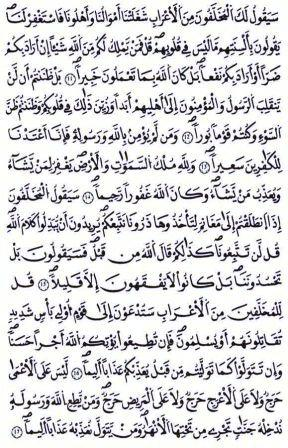 سَيَقُولُ لَكَ الْمُخَلَّفُونَ مِنَ الْأَعْرَابِ شَغَلَتْنَا أَمْوَالُنَا وَأَهْلُونَا فَاسْتَغْفِرْ لَنَا
يَقُولُونَ بِأَلْسِنَتِهِم مَّا لَيْسَ فِي قُلُوبِهِمْ قُلْ فَمَن يَمْلِكُ لَكُم مِّنَ اللَّهِ شَيْئًا إِنْ أَرَادَ بِكُمْ
ضَرًّا أَوْ أَرَادَ بِكُمْ نَفْعًا بَلْ كَانَ اللَّهُ بِمَا تَعْمَلُونَ خَبِيرًا ١١ بَلْ ظَنَنتُمْ أَن لَّن
يَنقَلِبَ الرَّسُولُ وَالْمُؤْمِنُونَ إِلَىٰ أَهْلِيهِمْ أَبَدًا وَزُيِّنَ ذَٰلِكَ فِي قُلُوبِكُمْ وَظَنَنتُمْ ظَنَّ
السَّوْءِ وَكُنتُمْ قَوْمًا بُورًا ١٢ وَمَن لَّمْ يُؤْمِن بِاللَّهِ وَرَسُولِهِ فَإِنَّا أَعْتَدْنَا
لِلْكَٰفِرِينَ سَعِيرًا ١٣ وَلِلَّهِ مُلْكُ السَّمَٰوَٰتِ وَالْأَرْضِ يَغْفِرُ لِمَن يَشَاءُ
وَيُعَذِّبُ مَن يَشَاءُ وَكَانَ اللَّهُ غَفُورًا رَّحِيمًا ١٤ سَيَقُولُ الْمُخَلَّفُونَ
إِذَا انطَلَقْتُمْ إِلَىٰ مَغَانِمَ لِتَأْخُذُوهَا ذَرُونَا نَتَّبِعْكُمْ يُرِيدُونَ أَن يُبَدِّلُوا كَلَٰمَ اللَّهِ
قُل لَّن تَتَّبِعُونَا كَذَٰلِكُمْ قَالَ اللَّهُ مِن قَبْلُ فَسَيَقُولُونَ بَلْ
تَحْسُدُونَنَا بَلْ كَانُوا لَا يَفْقَهُونَ إِلَّا قَلِيلًا ١٥ قُل
لِّلْمُخَلَّفِينَ مِنَ الْأَعْرَابِ سَتُدْعَوْنَ إِلَىٰ قَوْمٍ أُولِي بَأْسٍ شَدِيدٍ
تُقَٰتِلُونَهُمْ أَوْ يُسْلِمُونَ فَإِن تُطِيعُوا يُؤْتِكُمُ اللَّهُ أَجْرًا حَسَنًا
وَإِن تَتَوَلَّوْا كَمَا تَوَلَّيْتُم مِّن قَبْلُ يُعَذِّبْكُمْ عَذَابًا أَلِيمًا ١٦ لَّيْسَ عَلَى الْأَعْمَىٰ
حَرَجٌ وَلَا عَلَى الْأَعْرَجِ حَرَجٌ وَلَا عَلَى الْمَرِيضِ حَرَجٌ وَمَن يُطِعِ اللَّهَ وَرَسُولَهُ
يُدْخِلْهُ جَنَّٰتٍ تَجْرِي مِن تَحْتِهَا الْأَنْهَٰرُ وَمَن يَتَوَلَّ يُعَذِّبْهُ عَذَابًا أَلِيمًا ١٧